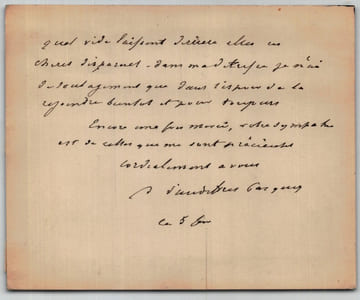 quel vide laissent derrière elles ces
chères disparues - dans ma détresse je n'ai
de soulagement que dans l'espoir de la
rejoindre bientôt et pour toujours
Encore une fois merci, votre sympathie
est de celles qui me sont précieuses
Cordialement à vous
d'Audiffret Pasquier
ce 5